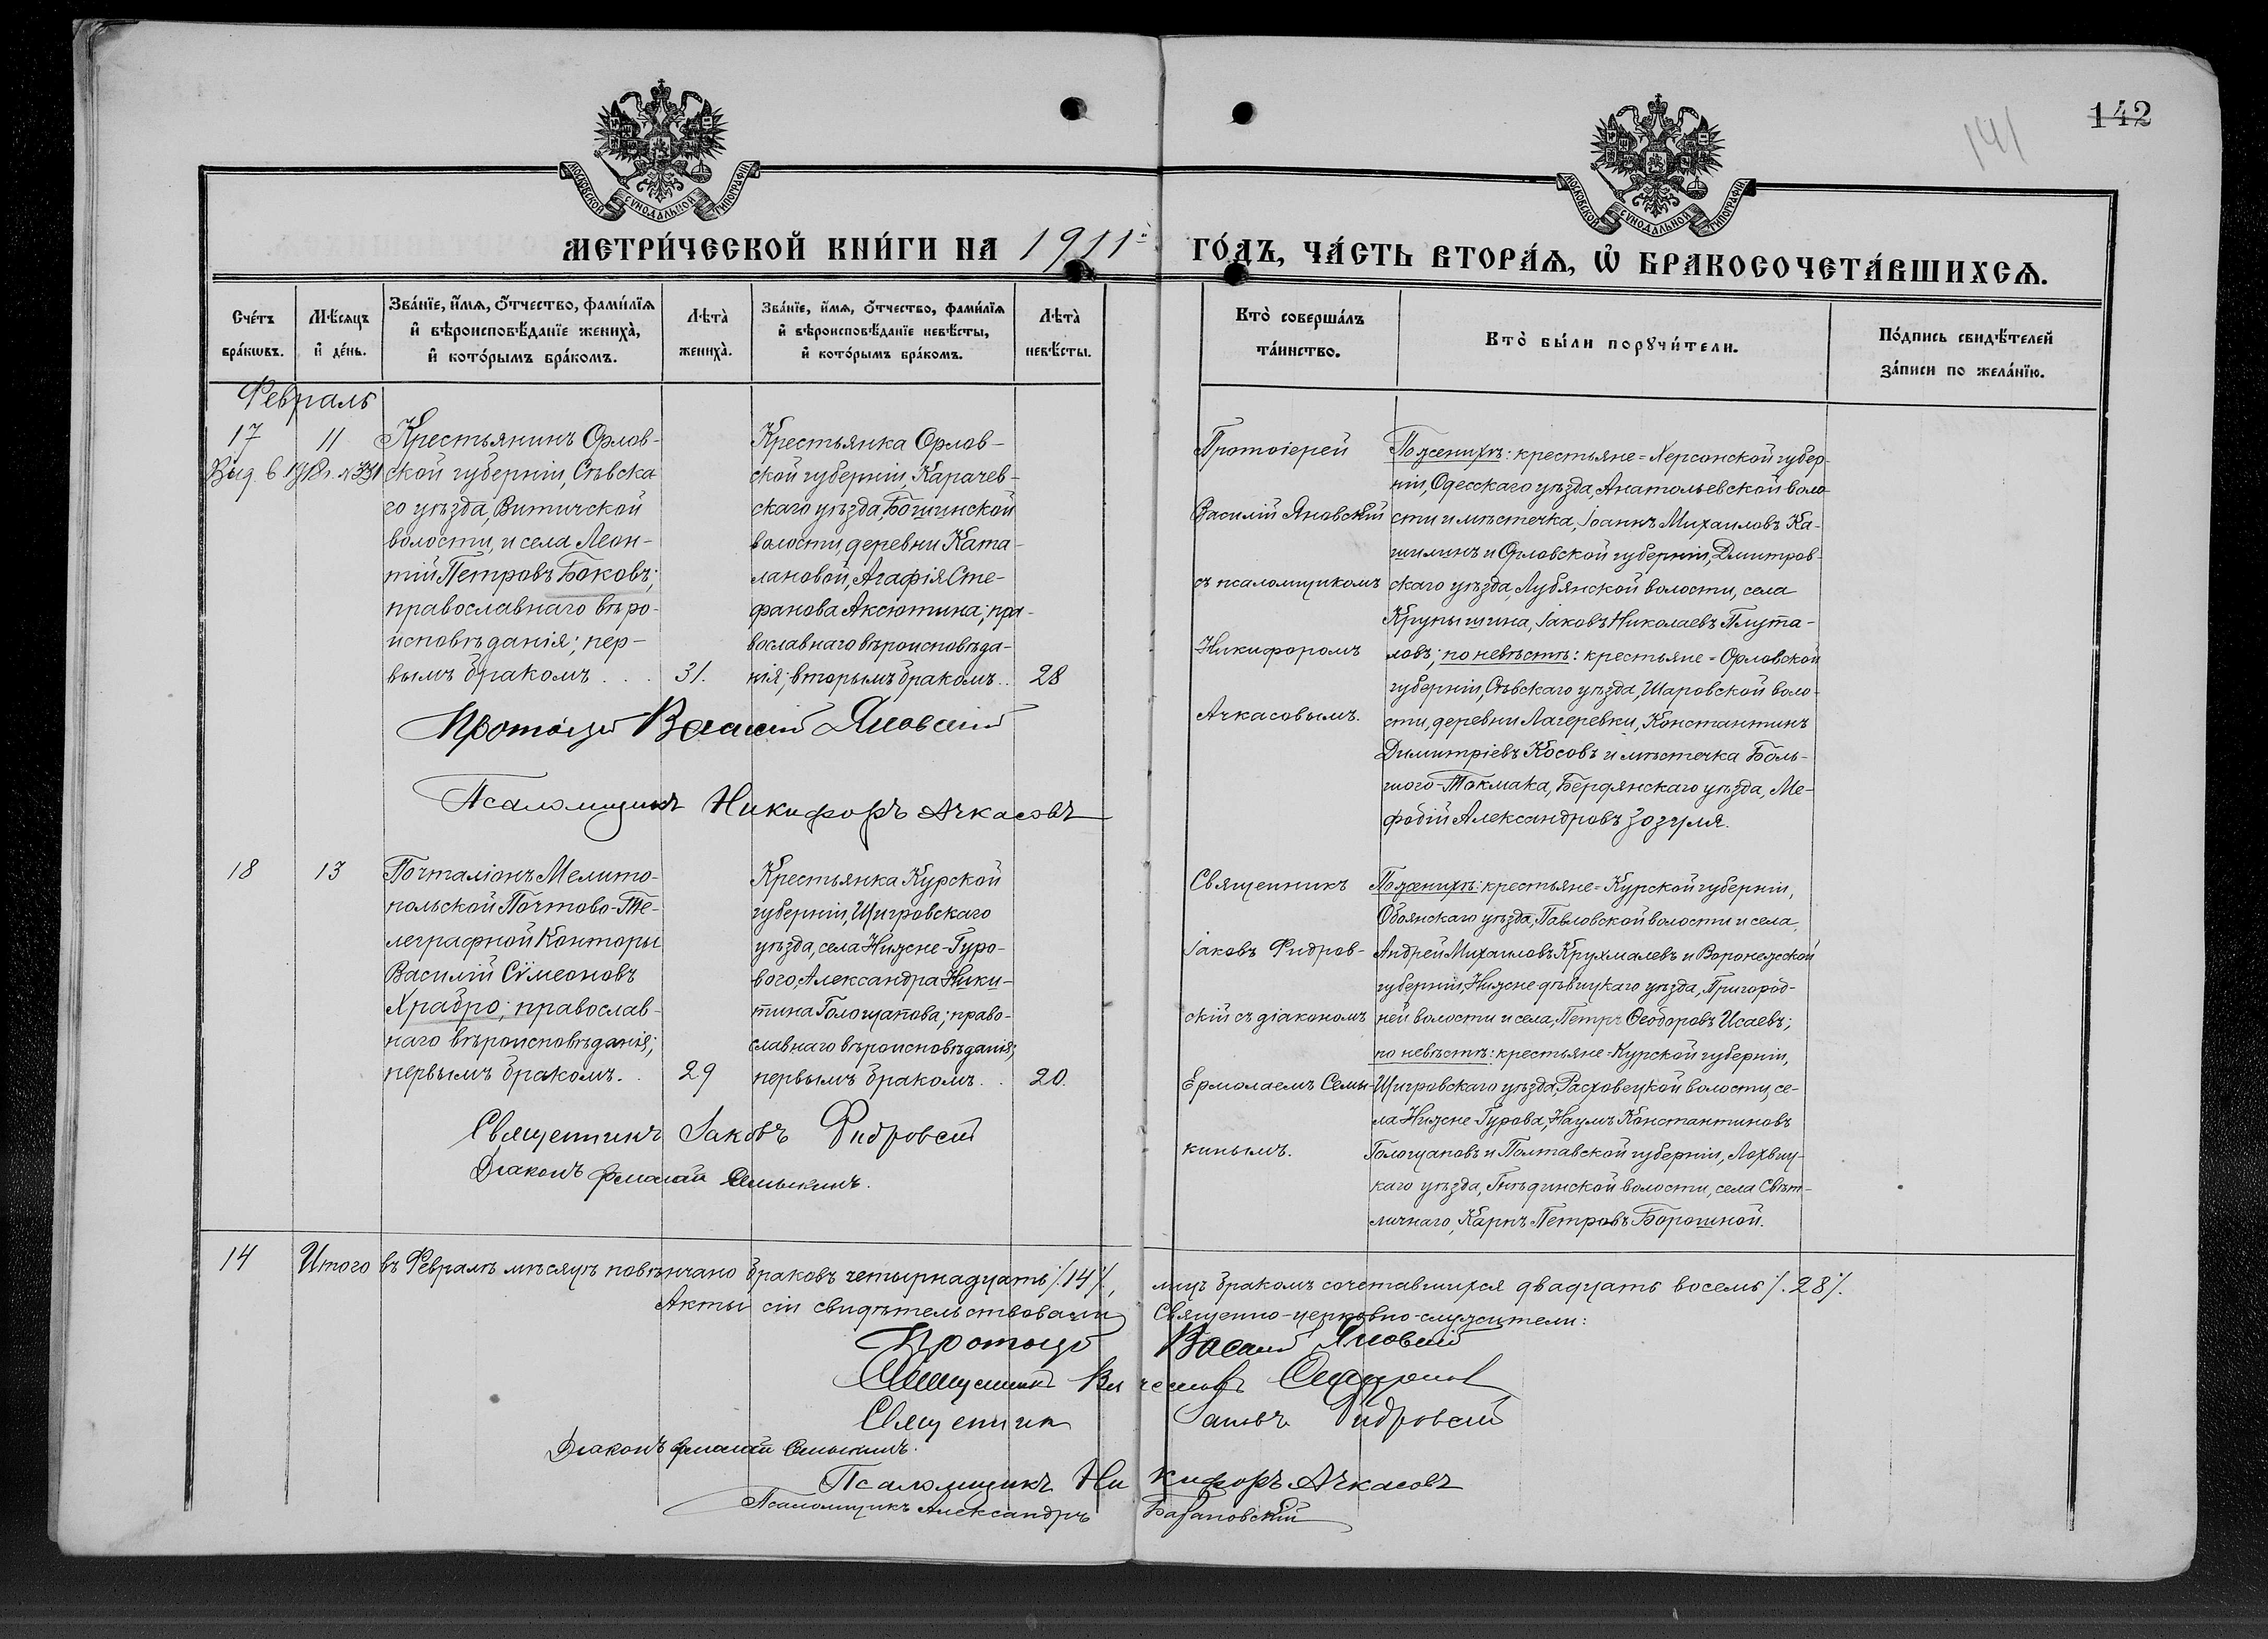 142
141
МОСКОВСКОЙ СѴНОДАЛЬНОЙ ТИПОГРАФІИ
МОСКОВСКОЙ СѴНОДАЛЬНОЙ ТИПОГРАФІИ
МЕТРИ́ЧЕСКОЙ КНИ́ГИ НА 1911й ГО́ДЪ, ЧА́СТЬ ВТОРА́Ѧ, Ѡ҆ БРАКОСОЧЕТА́ВШИХСѦ.
Сче́тъ
бра́кѡвъ.
Мѣ́сѧцъ
и҆ де́нь.
Зва́нїе, и҆́мѧ, ѻ҆́тчество, фами́лїѧ
и҆ вѣроисповѣ́данїе жениха̀,
и҆ кото́рымъ бра́комъ.
Лѣта̀
жениха̀.
Зва́нїе, и҆́мѧ, ѻ҆́тчество, фами́лїѧ
и҆ вѣроисповѣ́данїе невѣ́сты,
и҆ кото́рымъ бра́комъ.
Лѣта̀
невѣ́сты.
Кто̀ соверша́лъ
та́инство.
Кто̀ бы́ли порꙋчи́тели.
По́дпись свидѣ́телей
за́писи по жела́нїю.
Февраль
17
11
Выд. в
Крестьянинъ Орлов-
ской губерніи, Сѣвска
го уѣзда, Витичской
волости, и села Леон-
тій Петровъ Боковъ;
православнаго вѣро-
исповѣданія; пер-
вымъ бракомъ . . .
31.
Крестьянка Орлов-
ской губерніи, Карачев-
скаго уѣзда, Бошинской
волости, деревни Ката-
лановой, Агафія Сте-
фанова Аксютина; пра-
вославнаго вѣроисповѣда-
нія; вторымъ бракомъ. .
28
Протоіерей Василій Яновскій
Псаломщикъ Никифоръ Ачкасовъ
Протоіерей
Василій Яновскій
съ псаломщикомъ
Никифоромъ
Ачкасовымъ.
По женихѣ: крестьяне = Херсонской губер-
ніи, Одесскаго уѣзда, Анатольевской воло-
сти и мѣстечка, Іоаннъ Михаиловъ Ка-
шилинъ и Орловской губерніи, Дмитров-
скаго уѣзда, Лубянской волости, села
Крупышина, Іаковъ Николаевъ Плута-
ловъ; по невѣстѣ: крестьяне = Орловской
губерніи, Сѣвскаго уѣзда, Шаровской воло-
сти, деревни Лагеревки, Константинъ
Димитріевъ Косовъ и мѣстечка Боль-
шого-Токмака, Бердянскаго уѣзда, Ме-
фодій Александровъ Зозуля.
18
13
Почталіонъ Мелито-
польской Почтово-Те-
леграфной Конторы
Василій Сѵмеоновъ
Храбро; православ-
наго вѣроисповѣданія;
первымъ бракомъ. .
29
Крестьянка Курской
губерніи, Щигровскаго
уѣзда, села Нижне-Гуро-
вого, Александра Ники-
тина Голощапова; право-
славнаго вѣроисповѣданія;
первымъ бракомъ. .
20.
Священникъ Іаковъ Фидровскій
Діаконъ Ермолай Семыкинъ.
Священникъ
Іаковъ Фидров-
скій съ діакономъ
Ермолаемъ Семы-
кинымъ.
По женихѣ: крестьяне = Курской губерніи,
Обоянскаго уѣзда, Павловской волости и села,
Андрей Михаиловъ Крухмалевъ и Воронежской
губерніи, Нижне-дѣвицкаго уѣзда, Пригород-
ней волости и села, Петръ Ѳеодоровъ Исаевъ;
по невѣстѣ: крестьяне = Курской губерніи,
Щигровскаго уѣзда, Расховецкой волости, се-
ла Нижне-Гурова, Наумъ Константиновъ
Голощаповъ и Полтавской губерніи, Лохвиц-
каго уѣзда, Гнѣдинской волости, села Свѣт-
личнаго, Карпъ Петровъ Борошной.
14
Итого въ Февралѣ мѣсяцѣ повѣнчано браковъ четырнадцать /.14./, лицъ бракомъ сочетавшихся двадцать восемь /.28./.
Акты сіи свидѣтельствовали Священно-церковно-служители:
Протоіерей Василій Яновскій
Священникъ
Священникъ Іаковъ Фидровскій
Діаконъ Ермолай Семыкинъ.
Псаломщикъ Никифоръ Ачкасовъ
Псаломщикъ Александръ Барановскій